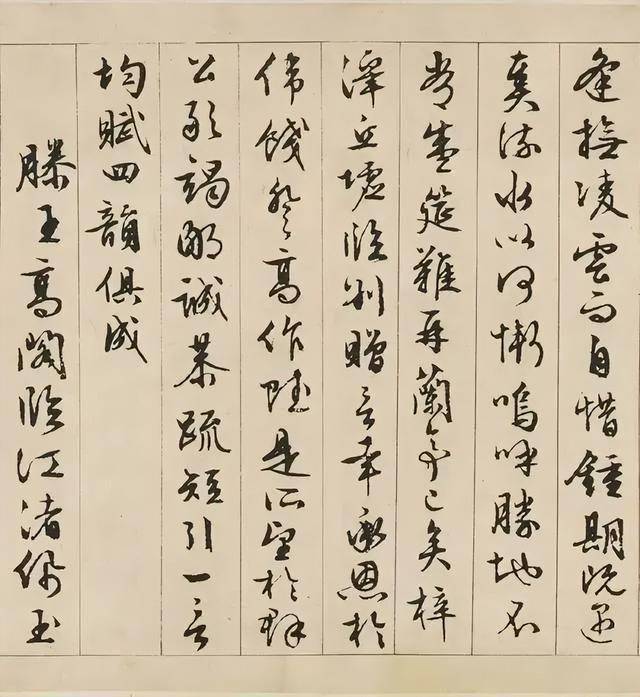 逢撫凌雲而自惜鍾期既遇
奏流水以何慚嗚呼勝地不
常盛筵難再蘭亭已矣梓
澤丘墟臨別贈言幸承恩於
偉餞登高作賦是所望於群
公敢竭鄙誠恭疏短引一言
均賦四韻俱成
滕王高閣臨江渚佩玉